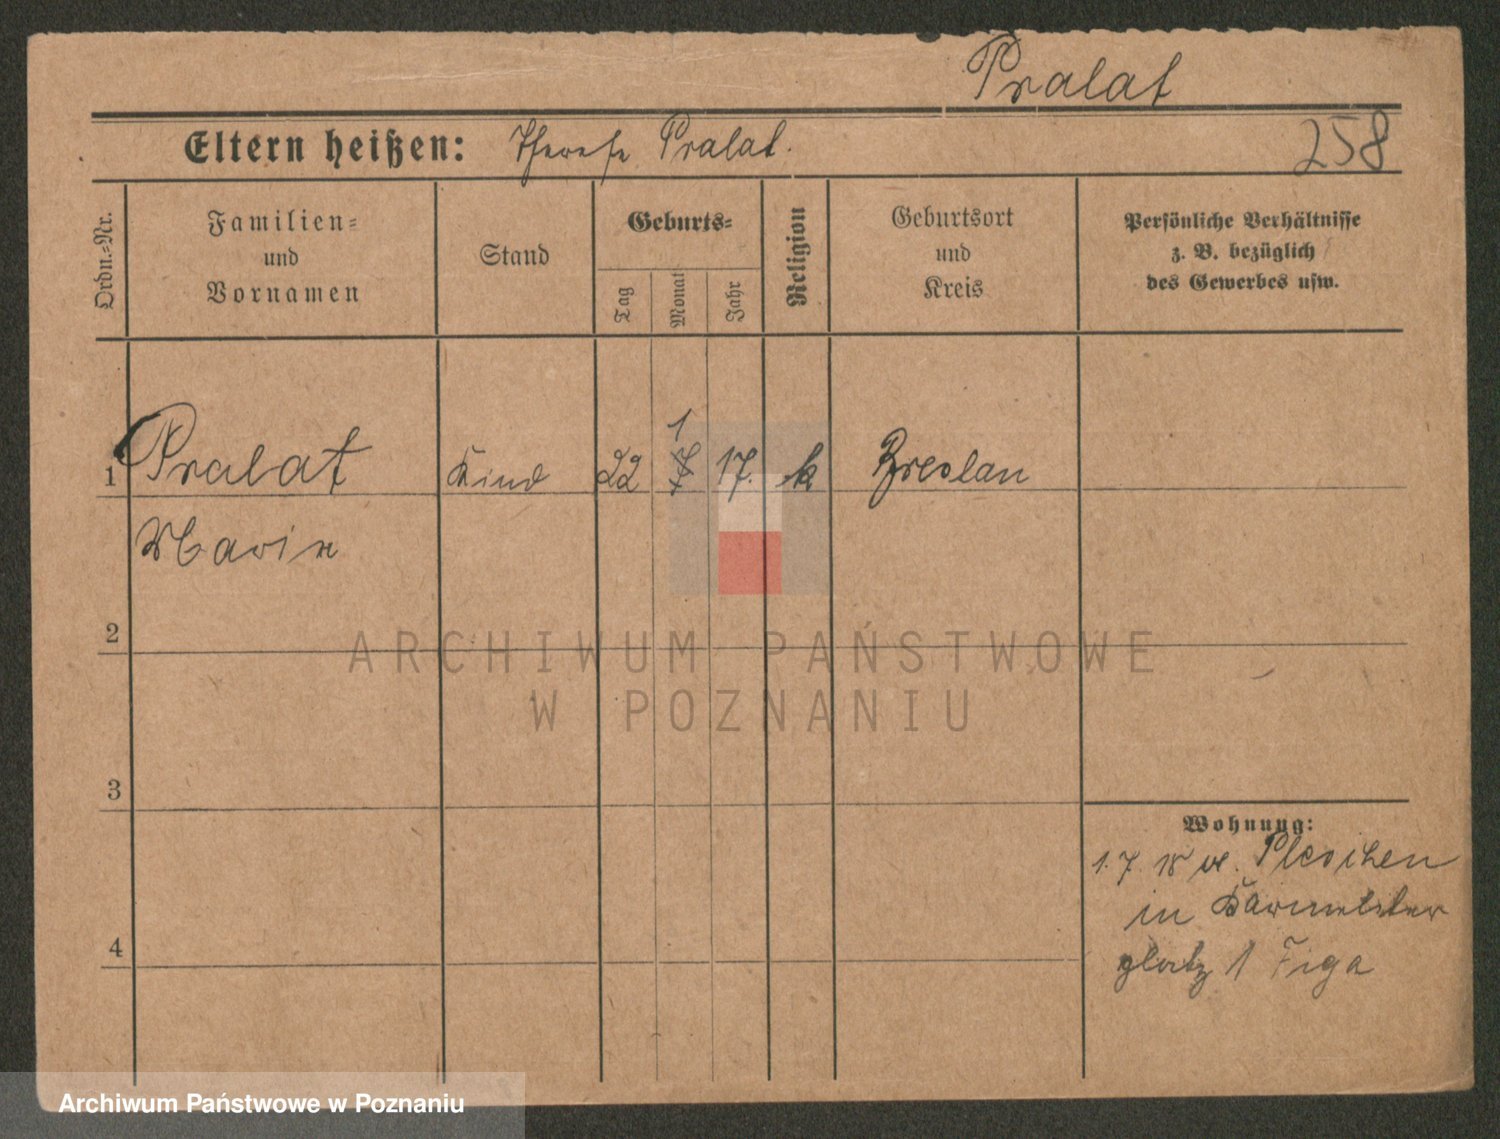 Pralat
Eltern heißen: Therese Pralat.
258
Ordn.=Nr.
Familien=
und
Vornamen
Stand
Geburts=
Tag
Monat
Jahr
Religion
Geburtsort
und
Kreis
Persönliche Verhältnisse
z. B. bezüglich
des Gewerbes usw.
1 Pralat Kind 22 1 17. k Breslau
Marie
2
3
4
Wohnung:
1. 7. 18 v. Pleschen
in Karmeliter
platz 1 Figa
ARCHIWUM PAŃSTWOWE
W POZNANIU
Archiwum Państwowe w Poznaniu